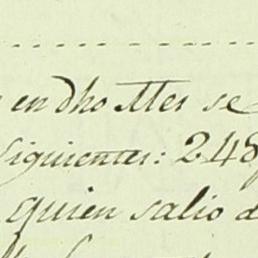 en dho Mes se
Siguientes: 248
quien salio d